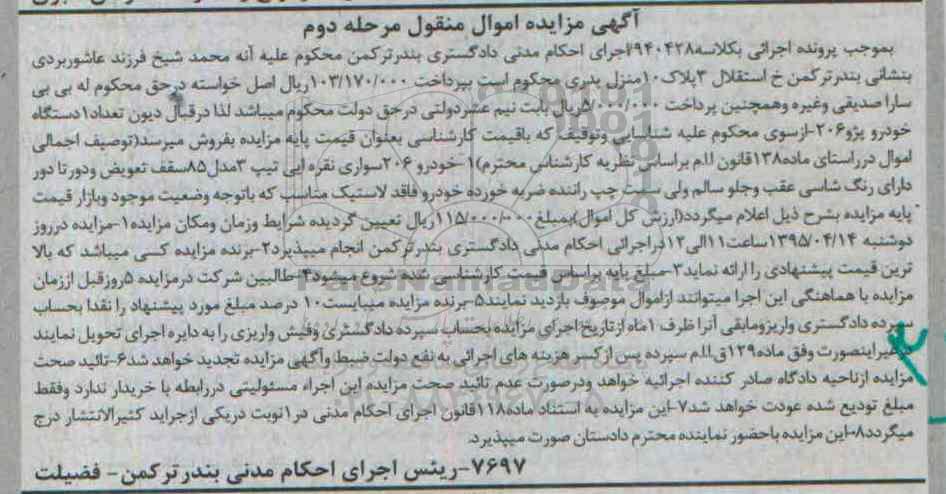 آگهی مزایده اموال منقول مرحله دوم
بموجب پرونده اجرائی بکلاسه۹۴۰۴۲۸اجرای احکام مدنی دادگستری بندرترکمن محکوم علیه آنه محمد شیخ فرزند عاشوربردی
بنشانی بندرترکمن خ استقلال ۳پلاک۱۰منزل پدری محکوم است بپرداخت ۱۰۳/۱۷۰/۰۰۰ریال اصل خواسته درحق محکوم له بی بی
سارا صدیقی وغیره وهمچنین پرداخت ۵/۰۰۰/۰۰۰ریال بابت نیم عشردولتی درحق دولت محکوم میباشد لذا درقبال دیون تعداد۱دستگاه
خودرو پژو۲۰۶-ازسوی محکوم علیه شناسایی وتوقیف که باقیمت کارشناسی بعنوان قیمت پایه مزایده بفروش میرسد(توصیف اجمالی
اموال درراستای ماده۱۳۸قانون ا.ا.م براساس نظریه کارشناس محترم)۱-خودرو ۲۰۶سواری نقره ایی تیپ ۳مدل۸۵سقف تعویض ودورتا دور
دارای رنگ شاسی عقب وجلو سالم ولی سمت چپ راننده ضربه خورده خودرو فاقد لاستیک مناسب که باتوجه وضعیت موجود وبازار قیمت
پایه مزایده بشرح ذیل اعلام میگردد(ارزش کل اموال)بمبلغ۱۱۵/۰۰۰/۰۰۰ریال تعیین گردیده شرایط وزمان ومکان مزایده۱-مزایده درروز
دوشنبه ۱۳۹۵/۰۴/۱۴ساعت۱۱الی۱۲دراجرائی احکام مدنی دادگستری بندرترکمن انجام میپذیرد۲-برنده مزایده کسی میباشد که بالا
ترین قیمت پیشنهادی را ارائه نماید۳-مبلغ پایه براساس قیمت کارشناسی شده شروع میشود۴-طالبین شرکت درمزایده ۵روزقبل اززمان
مزایده با هماهنگی این اجرا میتوانند ازاموال موصوف بازدید نمایند۵-برنده مزایده میبایست۱۰ درصد مبلغ مورد پیشنهاد را نقدا بحساب
سپرده دادگستری واریزومابقی آنرا ظرف ۱ماه ازتاریخ اجرای مزایده بحساب سپرده دادگستری وفیش واریزی را به دایره اجرای تحویل نمایند
درغیراینصورت وفق ماده۱۲۹ق.ا.ا.م سپرده پس ازکسر هزینه های اجرائی به نفع دولت ضبط وآگهی مزایده تجدید خواهد شد۶-تائید صحت
مزایده ازناحیه دادگاه صادر کننده اجرائیه خواهد ودرصورت عدم تائید صحت مزایده این اجراء مسئولیتی دررابطه با خریدار ندارد وفقط
مبلغ تودیع شده عودت خواهد شد۷-این مزایده به استناد ماده۱۱۸قانون اجرای احکام مدنی در۱نوبت دریکی ازجراید کثیرالانتشار درج
میگردد۸-این مزایده باحضور نماینده محترم دادستان صورت میپذیرد.
۷۶۹۷-رئیس اجرای احکام مدنی بندرترکمن- فضیلت
ParsNamadData